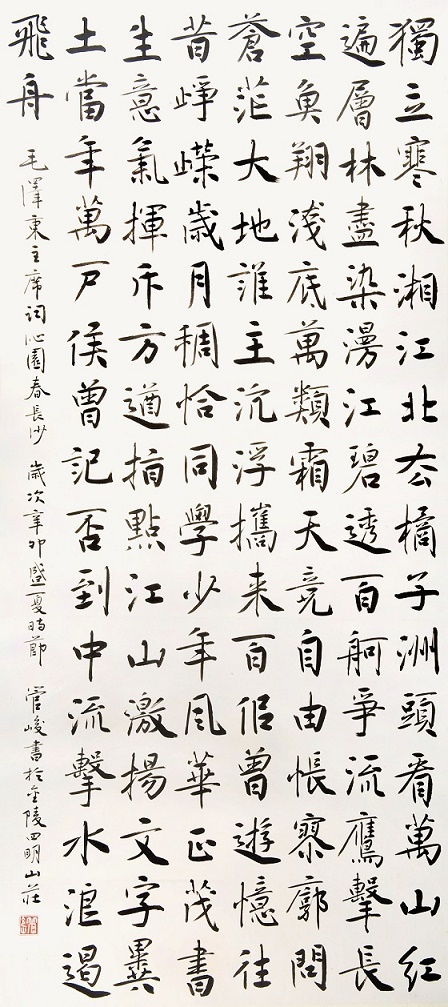 獨立寒秋湘江北去橘子洲頭看萬山紅
遍層林盡染漫江碧透百舸爭流鷹擊長
空魚翔淺底萬類霜天竞自由悵寥廓問
蒼茫大地誰主沉浮攜来百侣曾遊憶往
昔崢嶸歲月稠恰同學少年风華正茂書
生意氣揮斥方遒指點江山激揚文字糞
土當年萬户侯曾記否到中流擊水浪遏
飛舟 毛澤東主席詞沁園春長沙 歲次辛卯盛夏時節 管峻書於金陵四明山莊